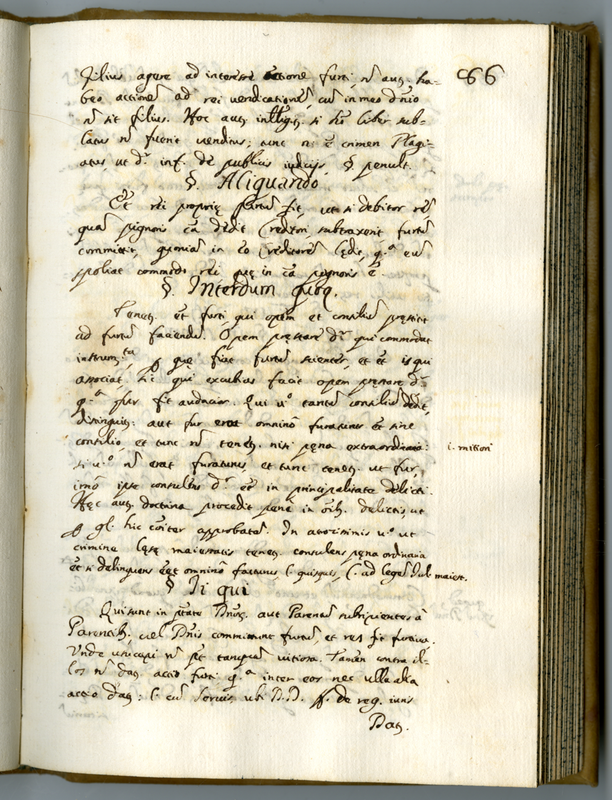 66
filius agere ad interesse actione furti, n̄ aut. ha=
beo actionē ad rei vendicationē, cū in meo d̄nio
n̄ sit filius. Hoc aut. intllig., si hō liber sub=
latus n̄ fuerit venditus; tunc n. ē crimen Plagi=
atus, ut d.r inf. de publicis iudicijs, §. penult.
§. Aliquando
Et rei proprię furtū fit, ut si debitor rē,
quā pignoris cā dedit Creditori subtraxerit furtū
committit, quoniā in eo Creditorē lędit, q.a eū
spoliat commodo rei quę in cā pignoris ē.
§. Interdum quoq.
Tenet. et furti qui opem et consiliū pręstitit
ad furtū faciendū. Opem pręstare d.r qui commodat
instrum.ta p quę fiat furtū scienter, et et is qui
associat. Sic qui excubias facit opem pręstare d.r
q.a fur fit audacior. Qui v.o tantū consiliū dedit,
distinguit.: aut fur erat omninò furaturus et sine
consilio, et tunc n̄ tenet. nisi pęna extraordinaria:
i. mition
si v.o n̄ erat furaturus, et tunc tenet. ut fur,
imò ipse consultus d.r et in principalitate delicti.
Hęc aut. doctrina procedit penè in oīb. delictis, ut
p gl. hic cōiter approbatā. In atrocissimis v.o ut
crimine lęsę maiestatis tenet. consulens pęna ordinaria
et si delinquens eēt omninò facturus l. quisquis, C. ad legē Iul. maiest.
§ Ii qui
Qui sunt in ptāte Dnōr. aut Parentū subripientes à
Parentib., vel Dnīs committunt furtū, et res fit furtiva.
Unde usucapi n̄ pōt tanquam vitiosa. Tamen contra il=
los n̄ dat. actio furti q.a inter eos nec ulla alia
actio dat.: l. cū servus, ubi DD. ff. de reg. iuris
Dat.